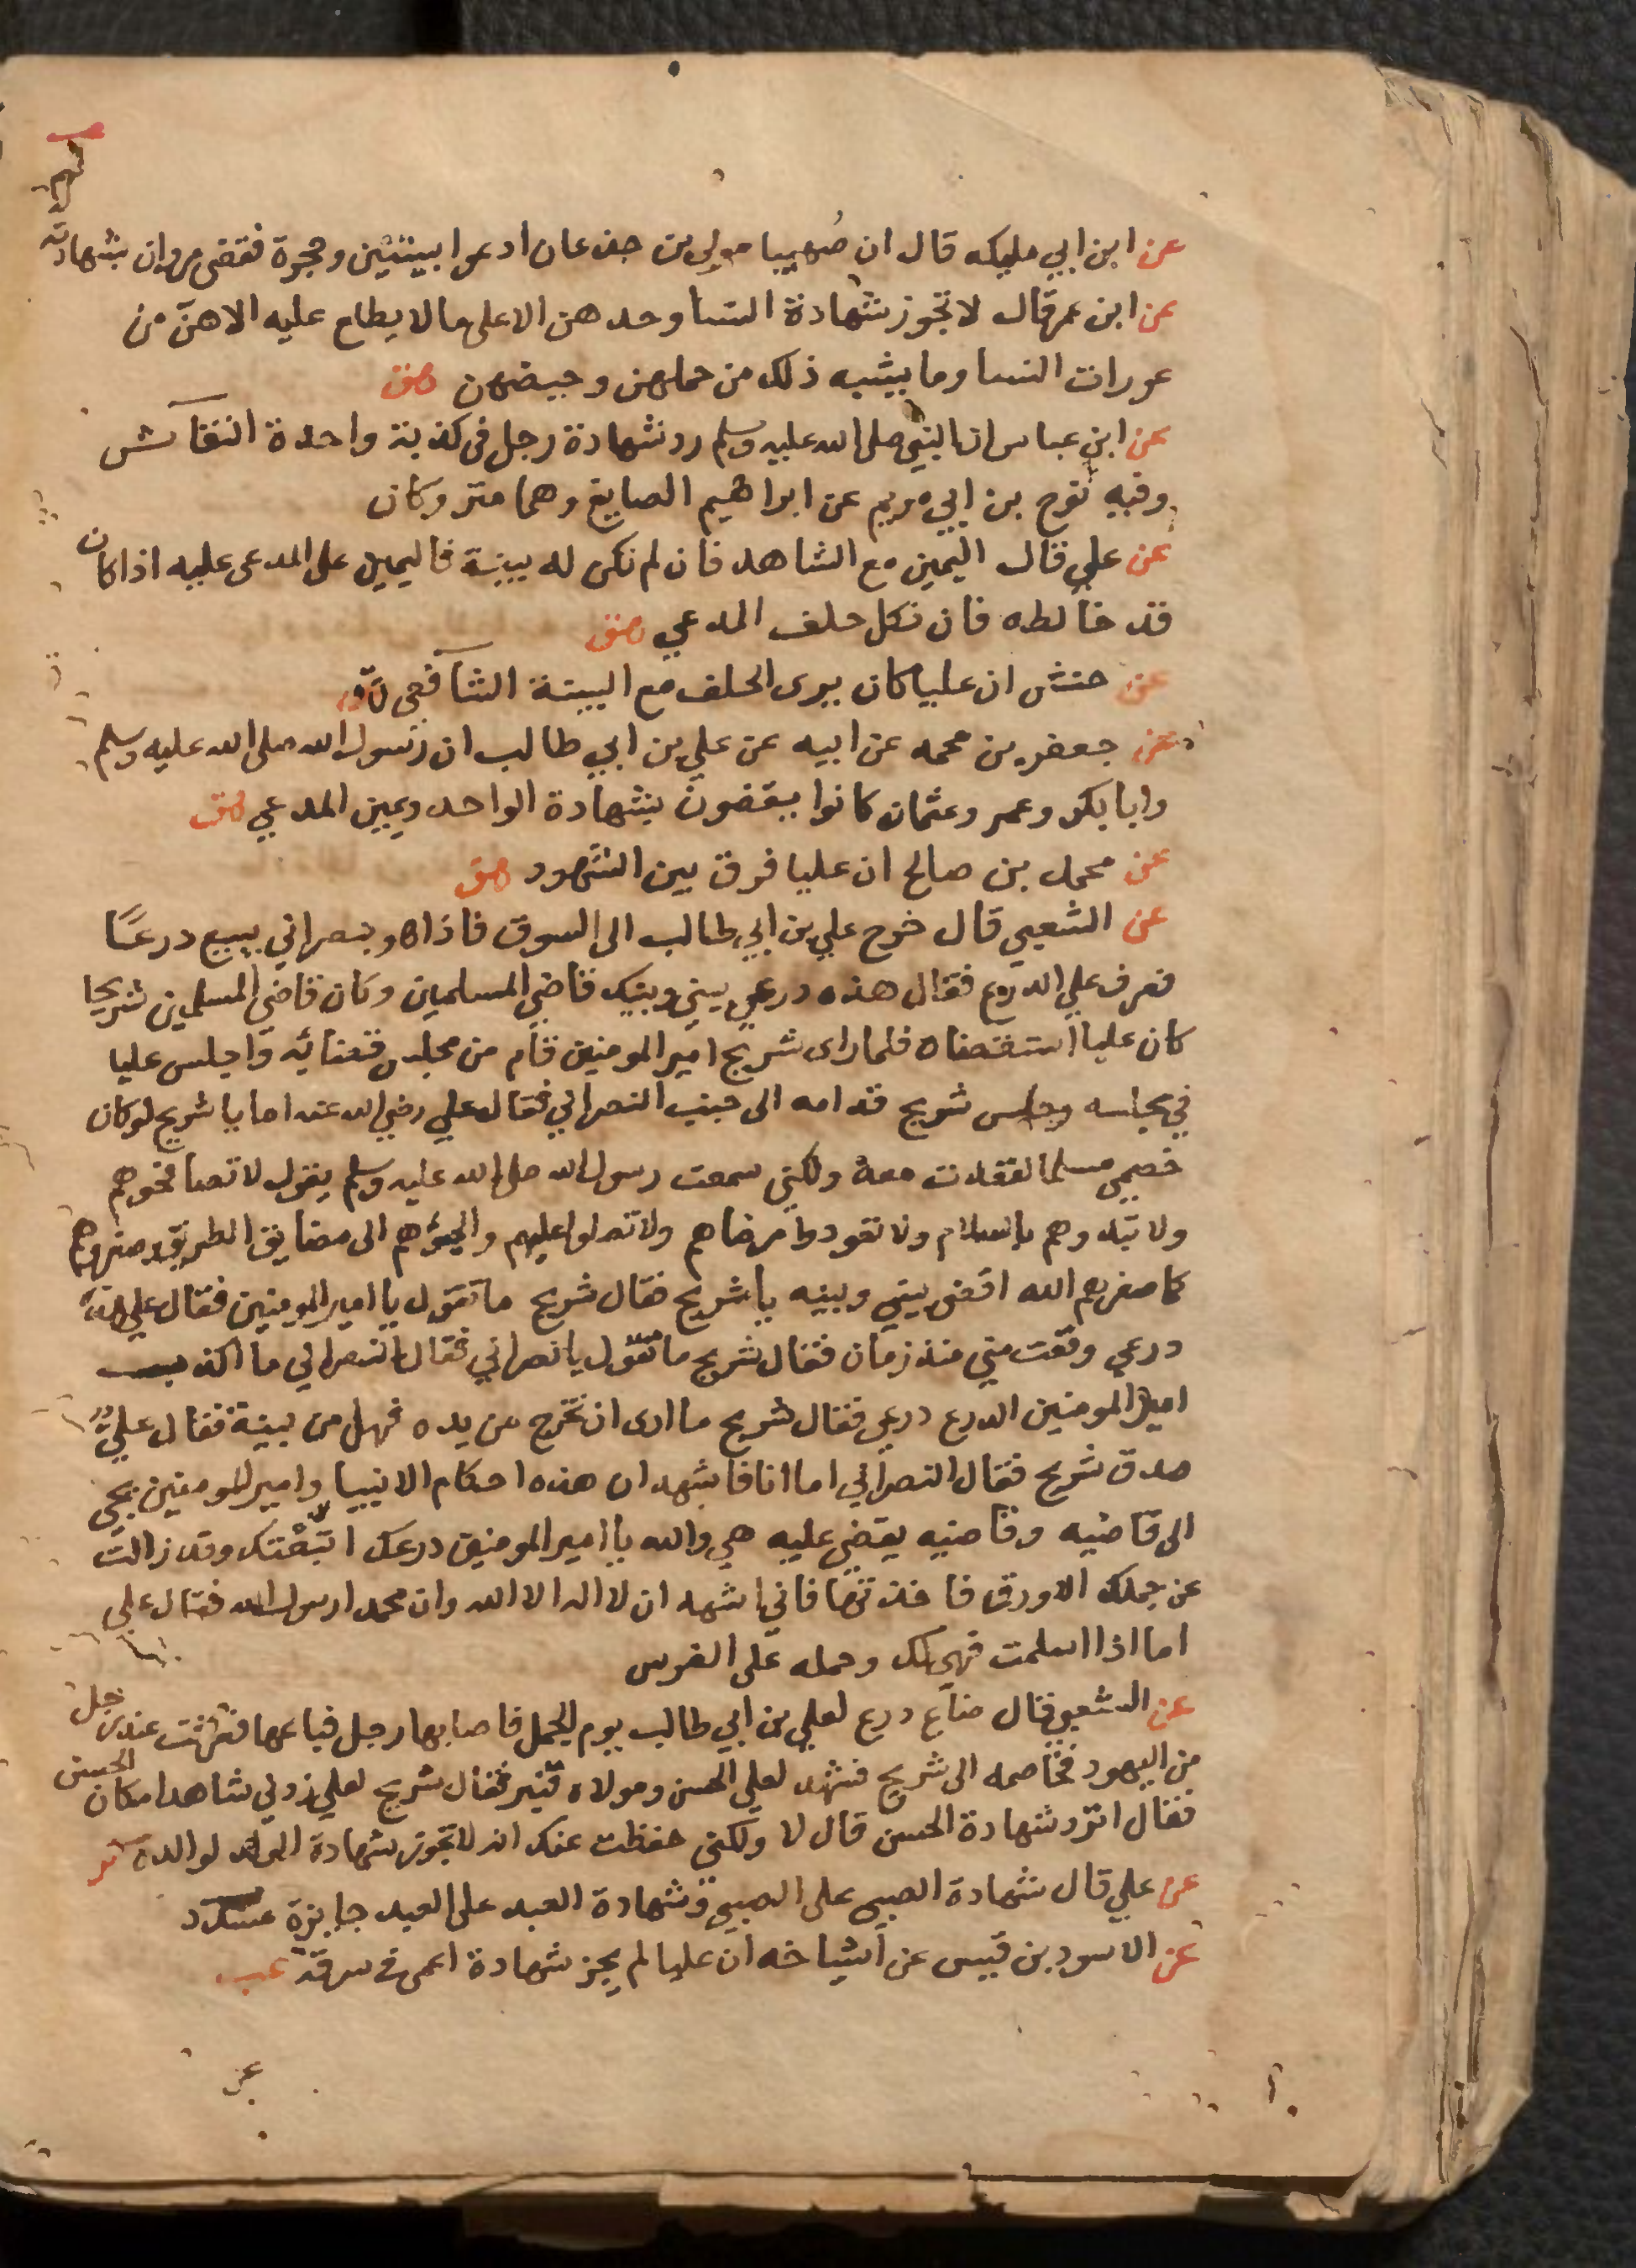 عن ابن ابي مليكه قال ان صُهيبا مولى بن جدعان ادعوا بيتين وحجرة فقضى مروان بشهادته
عن ابن عمر قال لا تجوز شهادة النسا وحدهن الا على ما لا يطلع عليه الا هن من
عورات النسا وما يشبه ذلك من حملهن وحيضهن هق
عن ابن عباس ان النبي صلى الله عليه وسلم رد شهادة رجل فى كذبة واحدة النقاش
وفيه نوح بن ابي مريم عن ابراهيم الصايغ وهما متروكان
عن علي قال اليمين مع الشاهد فان لم تكن له بينة فاليمين على المدعى عليه اذا كان
قد خالطه فان نكل حلف المدعي هق
عن حنش ان عليا كان يرى الحلف مع البينة الشافعى ق
عن جعفر بن محمد عن ابيه عن علي بن ابي طالب ان رسول الله صلى الله عليه وسلم
وابا بكر وعمر وعثمان كانوا يقضون بشهادة الواحد ويمين المدعي هق
عن محمد بن صالح ان عليا فرق بين الشهود هق
عن الشعبي قال خرج علي بن ابي طالب الى السوق فاذا هو بنصراني يبيع درعًا
فعرف علي الدرع فقال هذه درعي بيني وبينك قاضي المسلمين وكان قاضي المسلمين شريحا
كان عليا استقضاه فلما راى شريح امير المومنين قام من مجلس قضائه واجلس عليا
في مجلسه وجلس شريح قدامه الى جنب النصراني فقال علي رضي الله عنه اما يا شريح لو كان
خصمي مسلما لقعدت معه ولكني سمعت رسول الله صلى الله عليه وسلم يقول لا تصافحوهم
ولا تبدوهم بالسلام ولا تعودوا مرضاهم ولا تصلوا عليهم والجئوهم الى مضايق الطريق وصغروهم
كما صغرهم الله اقض بيني وبينه يا شريح فقال شريح ما تقول يا امير المومنين فقال علي هذه
درعي وقعت مني منذ زمان فقال شريح ما تقول يا نصراني فقال النصراني ما اكذب
امير المومنين الدرع درعي فقال شريح ما ارى ان تخرج من يده فهل من بينة فقال علي
صدق شريح فقال النصراني اما انا فاشهد ان هذه احكام الانبيا وامير المومنين يجي
الى قاضيه وقاضيه يقضي عليه هي والله يا امير المومنين درعك اتبعتك وقد زالت
عن جملك الاورق فاخذتها فاني اشهد ان لا اله الا الله وان محمدا رسول الله فقال علي
اما اذا اسلمت فهي لك وحمله على الفرس
عن الشعبي قال ضاع درع لعلي بن ابي طالب يوم الجمل فاصابها رجل فباعها فعرفت عند رجل
من اليهود فخاصمه الى شريح فشهد لعلي الحسن ومولاه قنبر فقال شريح لعلي زدني شاهدا مكان الحسن
فقال اترد شهادة الحسن قال لا ولكني حفظت عنك انه لا تجوز شهادة الولد لوالده كر
عن علي قال شهادة الصبي على الصبي وشهادة العبد على العبد جايزة مسدد
عن الاسود بن قيس عن اشياخه ان عليا لم يجز شهادة اعمى في سرقة عب
عن